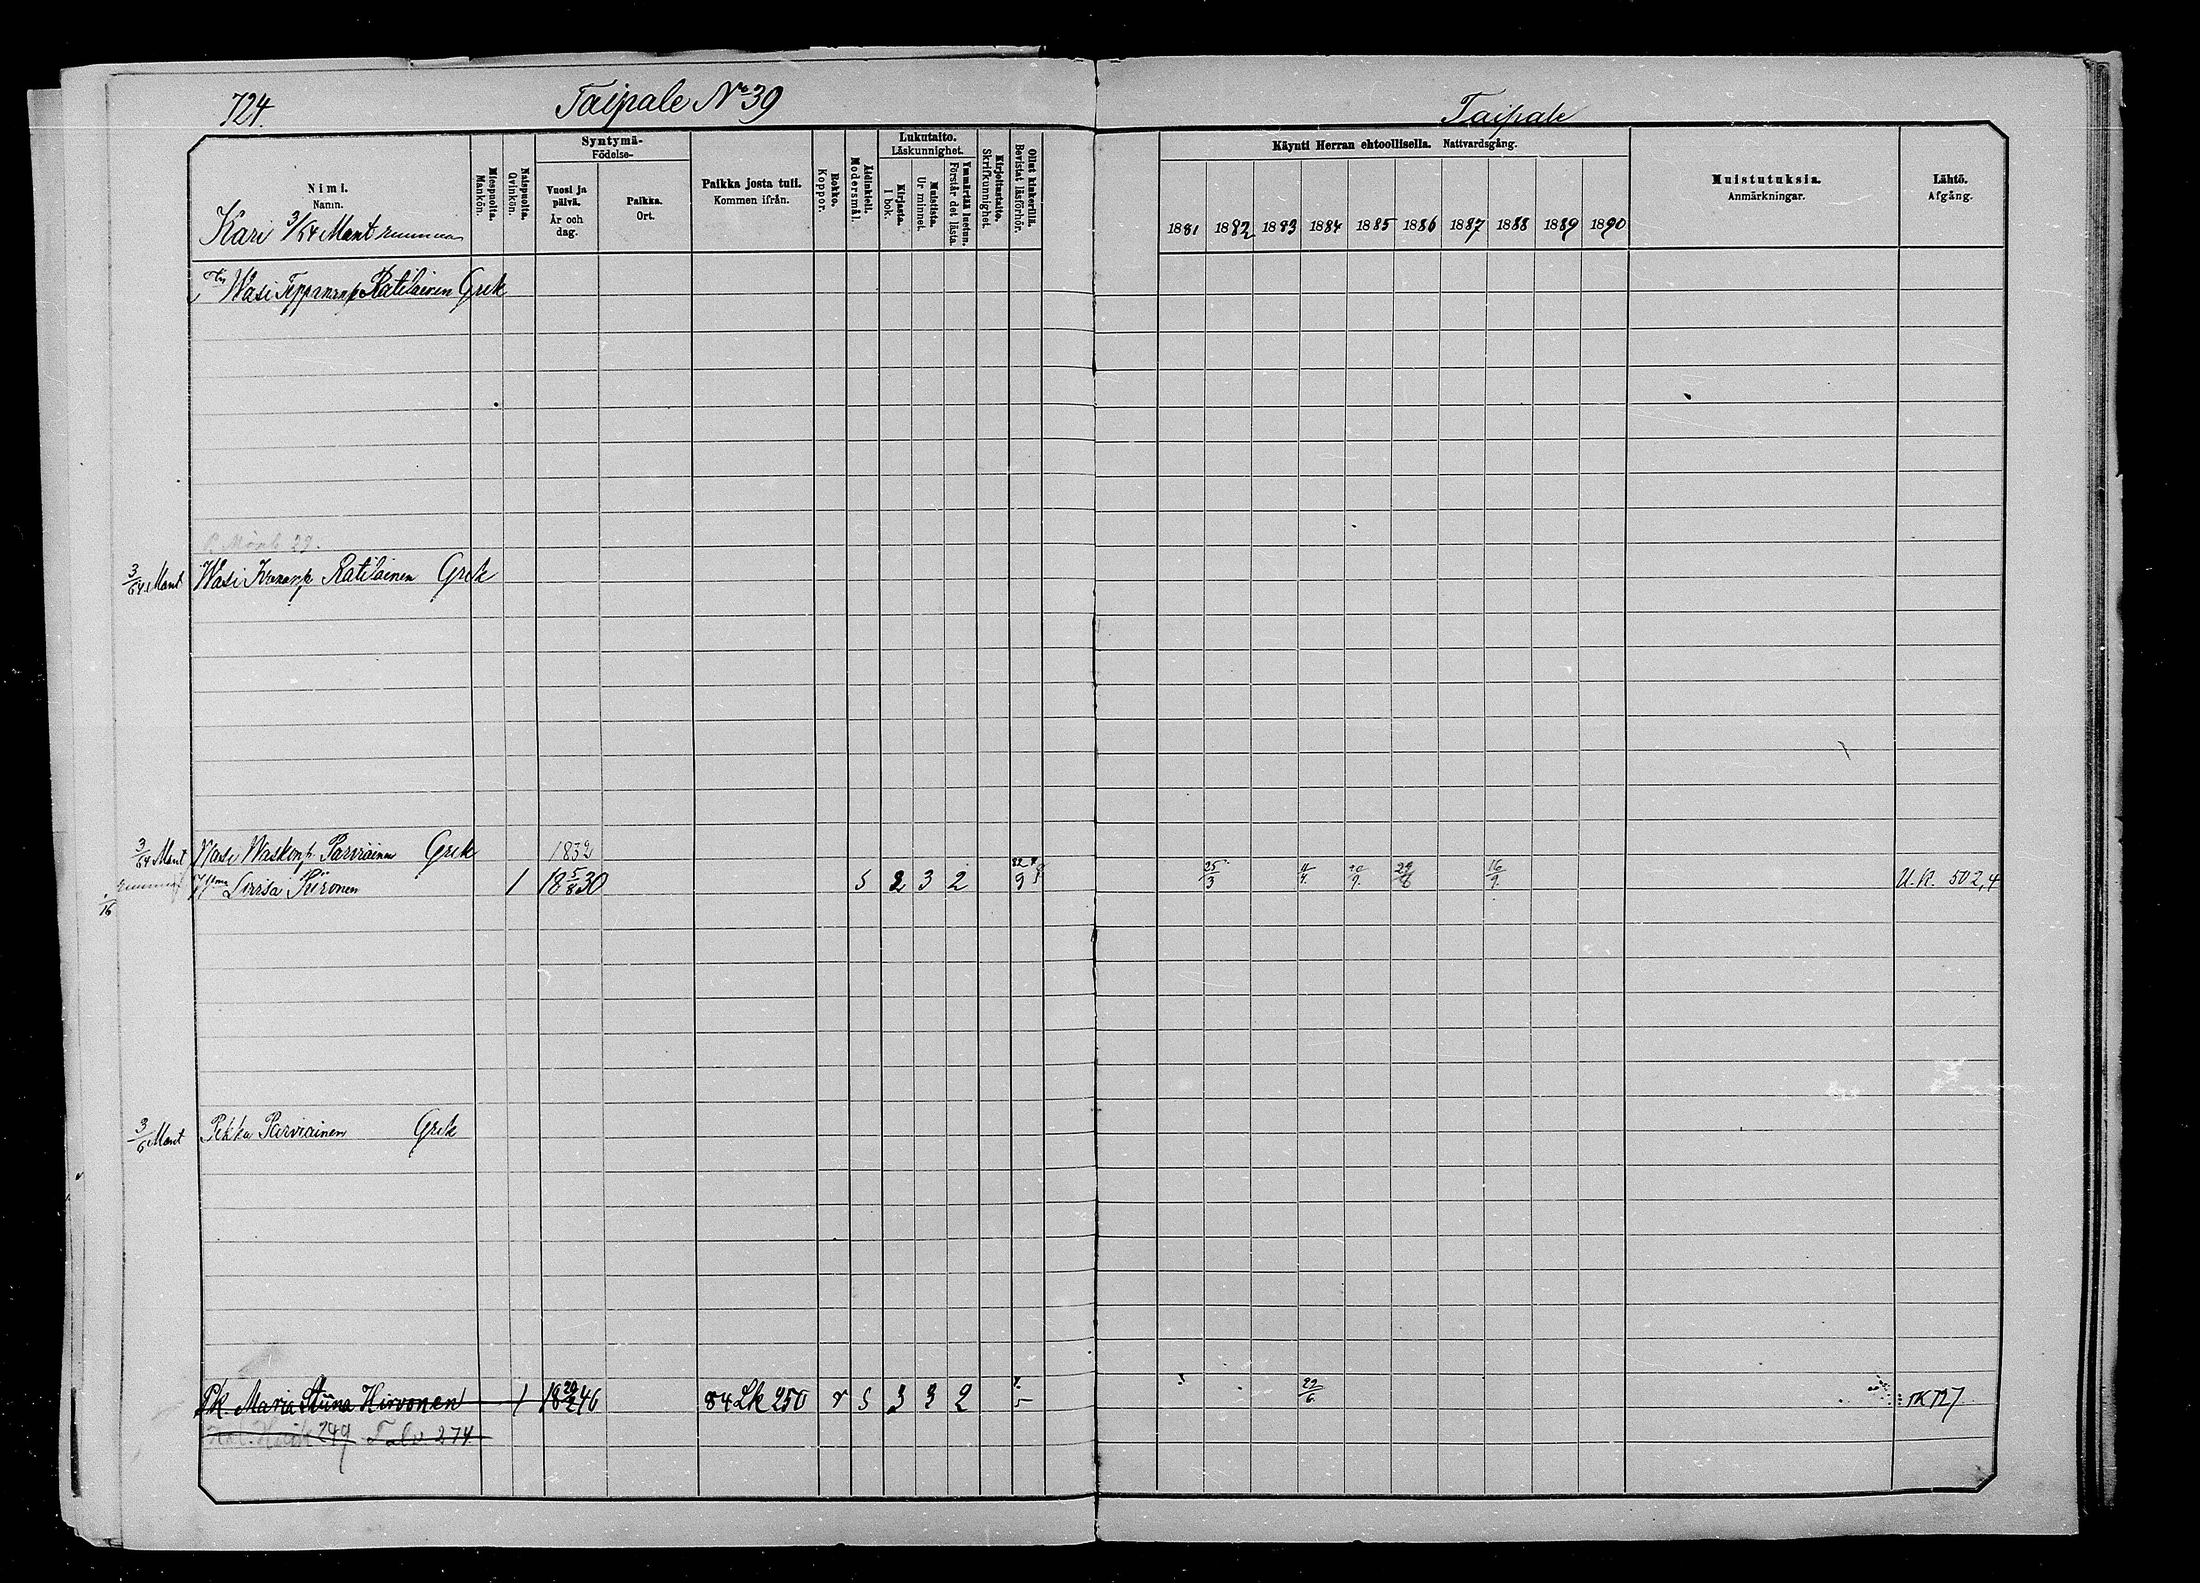 724.
Taipale No 39
Taipale
Nimi.
Namn.
Kari 3/54 Mant
Miespuolta.
Mankön.
Naispuolta.
Qvinkön.
Syntymä-
Födelse-
Vuosi ja päivä.
År och dag.
Paikka.
Ort.
Paikka josta tuli.
Kommen ifrån.
Rokko.
Koppor.
Äidinkieli.
Modersmål.
Lukutaito.
Läskunnighet.
Kirjasta.
I bok.
Muistista.
Ur minnet.
Ymmärtää luetun.
Förstår det lästa.
Kirjoitustaito.
Skrifkunnighet.
Ollut kinkerillä.
Bevistat läsförhör.
Käynti Herran ehtoollisella. Nattvardsgång.
1881 1882 1883 1884 1885 1886 1887 1888 1889 1890
Muistutuksia.
Anmärkningar.
Lähtö.
Afgång.
Wasi Teppananp Ratilainen Grek
3/64 Mant Wasi Ivananp Ratilainen Grek
3/64 Mant Wasi Waskenp Parviainen Grek 1832
Lovisa Piironen 1 18 5/8 30 5 2 3 2 25/3 29/6 16/9. U.K. 502,4
3/6 Mant Pekka Parviainen Grek
Pk Maria Stiina Hirvonen 1 18 20/2 46 84 Lk 250 r 5 3 3 2 29/6 TK 727
249 Talv 274